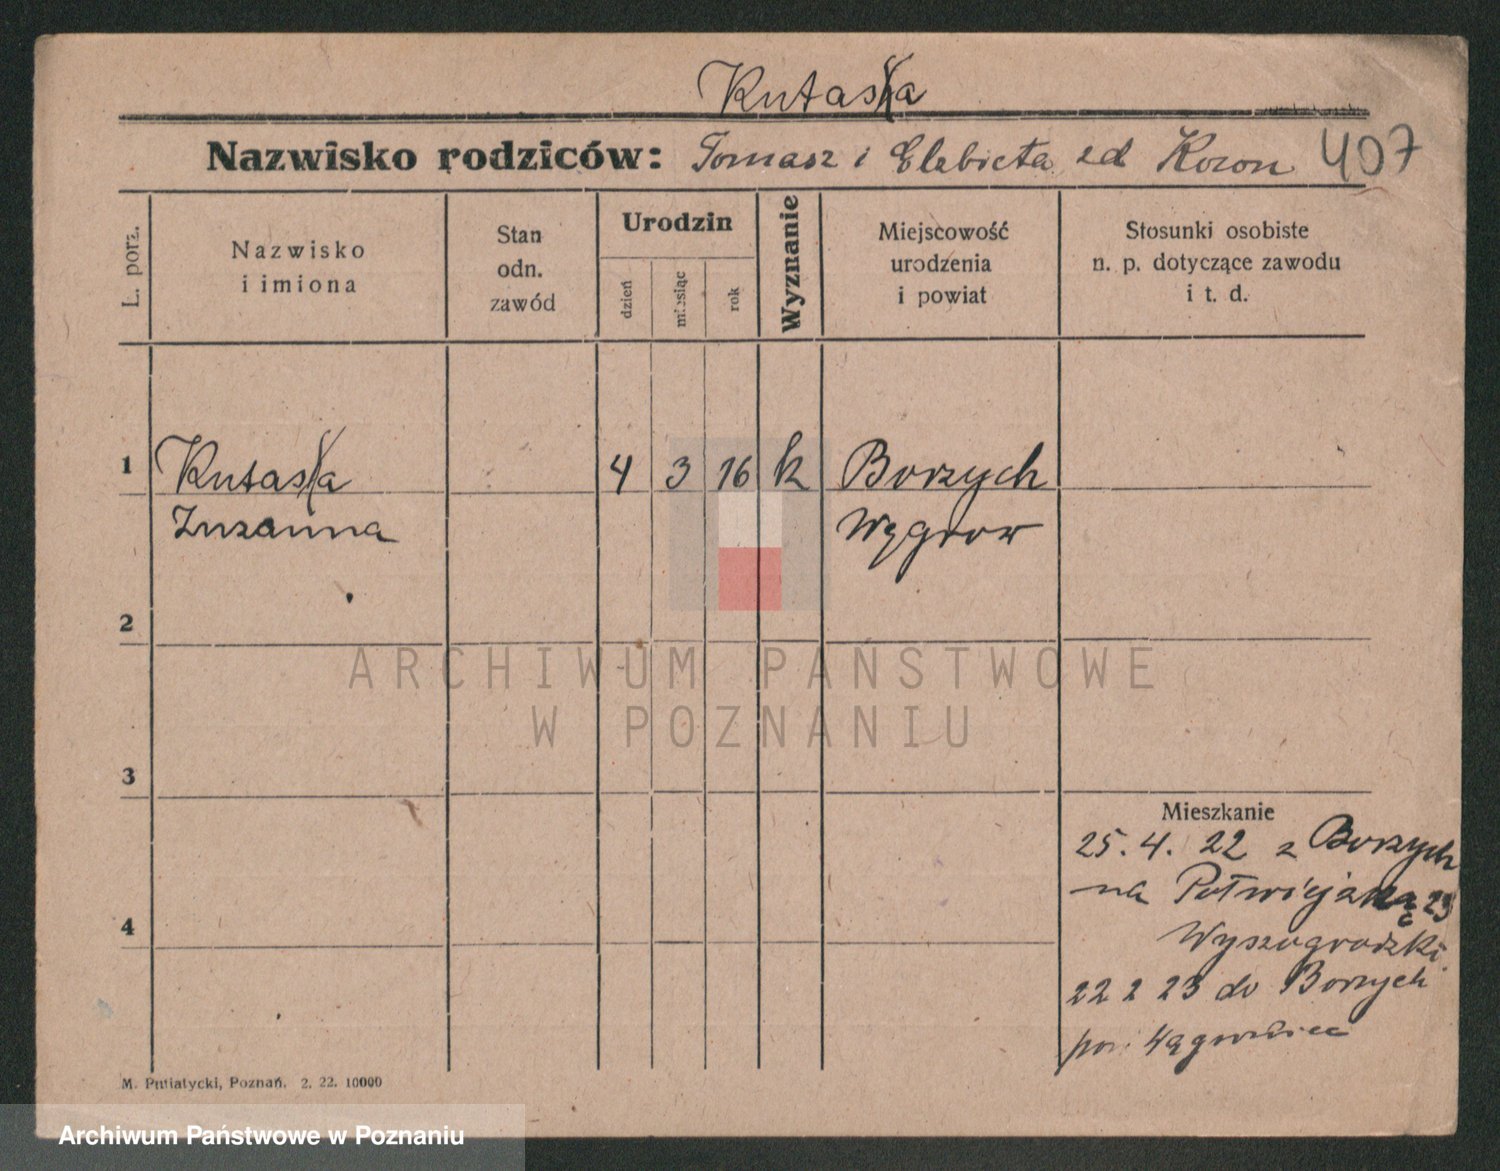 Kutaska
Nazwisko rodziców: Tomasz i Elżbieta zd Kozon 407
L. porz.
Nazwisko
i imiona
Stan
odn.
zawód
Urodzin
dzień
miesiąc
rok
Wyznanie
Miejscowość
urodzenia
i powiat
Stosunki osobiste
n. p. dotyczące zawodu
i t. d.
1 Kutaska 4 3 16 k Borzych
Zuzanna Węgrow
2
ARCHIWUM PAŃSTWOWE
W POZNANIU
3
Mieszkanie
25. 4. 22 z Borzych
na Półwiejską 23
4
Wyszogrodzki
22 2 23 do Borzych
pow.
M. Putiatycki, Poznań. 2. 22. 10000
Archiwum Państwowe w Poznaniu